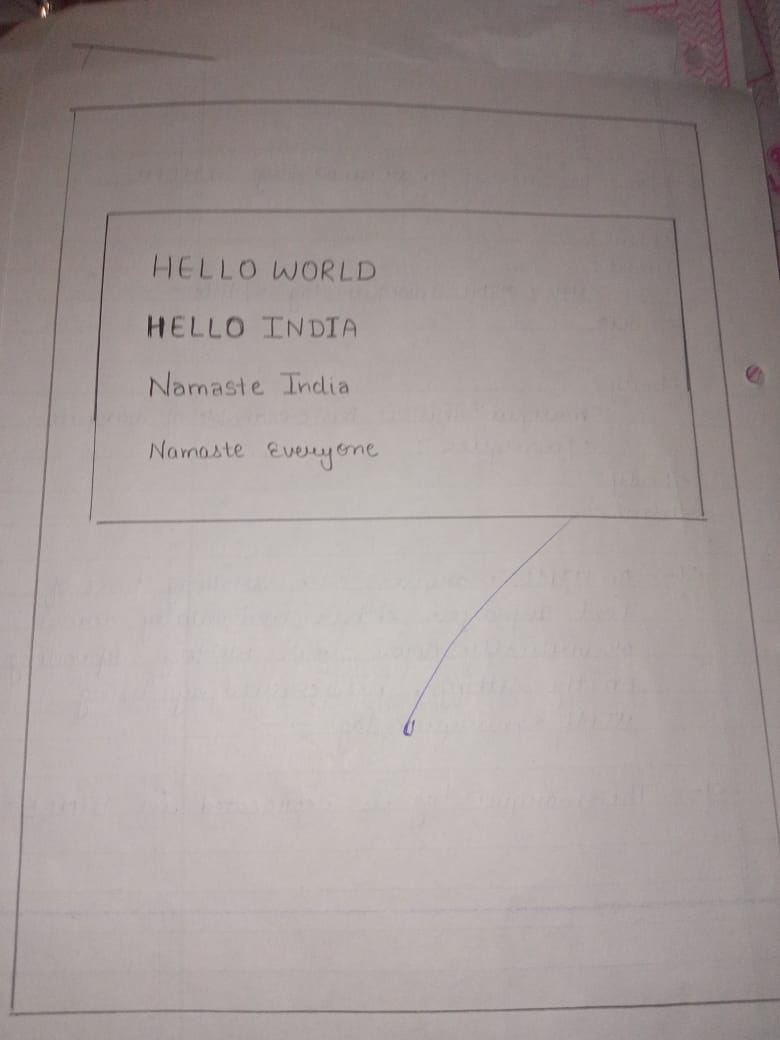 HELLO WORLD
HELLO INDIA
Namaste India
Namaste Everyone